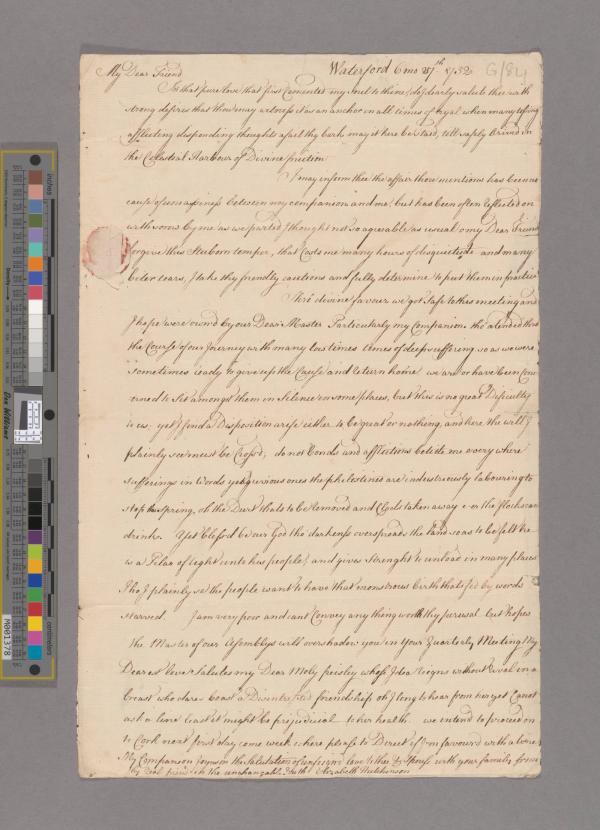 My Dear Friend Waterford 6 mo 27th 1752 G/84
In that pure love that first Cemented my Soul to thine, do I dearly salute thee with
strong desires that thou may witness it as an anchor in all times of tryal when many
afflicting desponding thoughts assail thy bark may it here be staid, till safely arived in
the Celestial Harbour of Divine fruition
I may inform thee the affair thou mentions has been no
cause of uneasiness between my companion and me, but has been often reflected on
with sorow by me as we parted I thought not so agreable as usual o my Dear Friend
forgive this Stuborn temper, that Costs me many hours of disquietude and many
biter tears, I take thy friendly cautions and fully determine to put them in practice
Thro divine favour we got Safe to this meeting and
I hope were ownd by our Dear Master Particularly my Companion tho atended thro
the Course of our Journey with many times of deep suffering so as we were
sometimes ready to give up the Cause and return home we are or have been Con
cerned to Sit amongst them in Silence in some places, but this is no great Dificulty
to us, yet I find a Disposition arise either to be great or nothing, and here the will I
plainly see must be Crossd, do not bonds and afflictions betide me every where
sufferings in words the philistines are industreously labouring to
stop the Spring, oh the Dust thats to be removed and Clods taken away e're the flocks can
drink. Yet blessed be our God tho darkness overspreads the land so as to be felt he
is a Pilar of light unto his people, and gives strenght to unload in many places
Tho I plainly see the people want to have that monstrous birth thats fed by words
starved. I am very poor and cant Convey any thing worth thy perusal but hopes
the Master of our Assemblys will overshadow you in your Quarterly Meeting My
Dearest love Salutes my Dear Moly whose Idea reigns without Rival in a
breast who dare boast a Disintrested friendship oh I long to hear from her yet Canot
ask a line least it might be prejudicial to her health we intend to proceed on
to Cork next first day come week where please to Direct if I'm favour'd with a line
My Companion Joyns in the Salutation of unfeigned love to thee & Spouse with your family from
thy Real friend in the unchangable truth Elizabeth Hutchinson
inches
centimeters
Don Williams
M001378